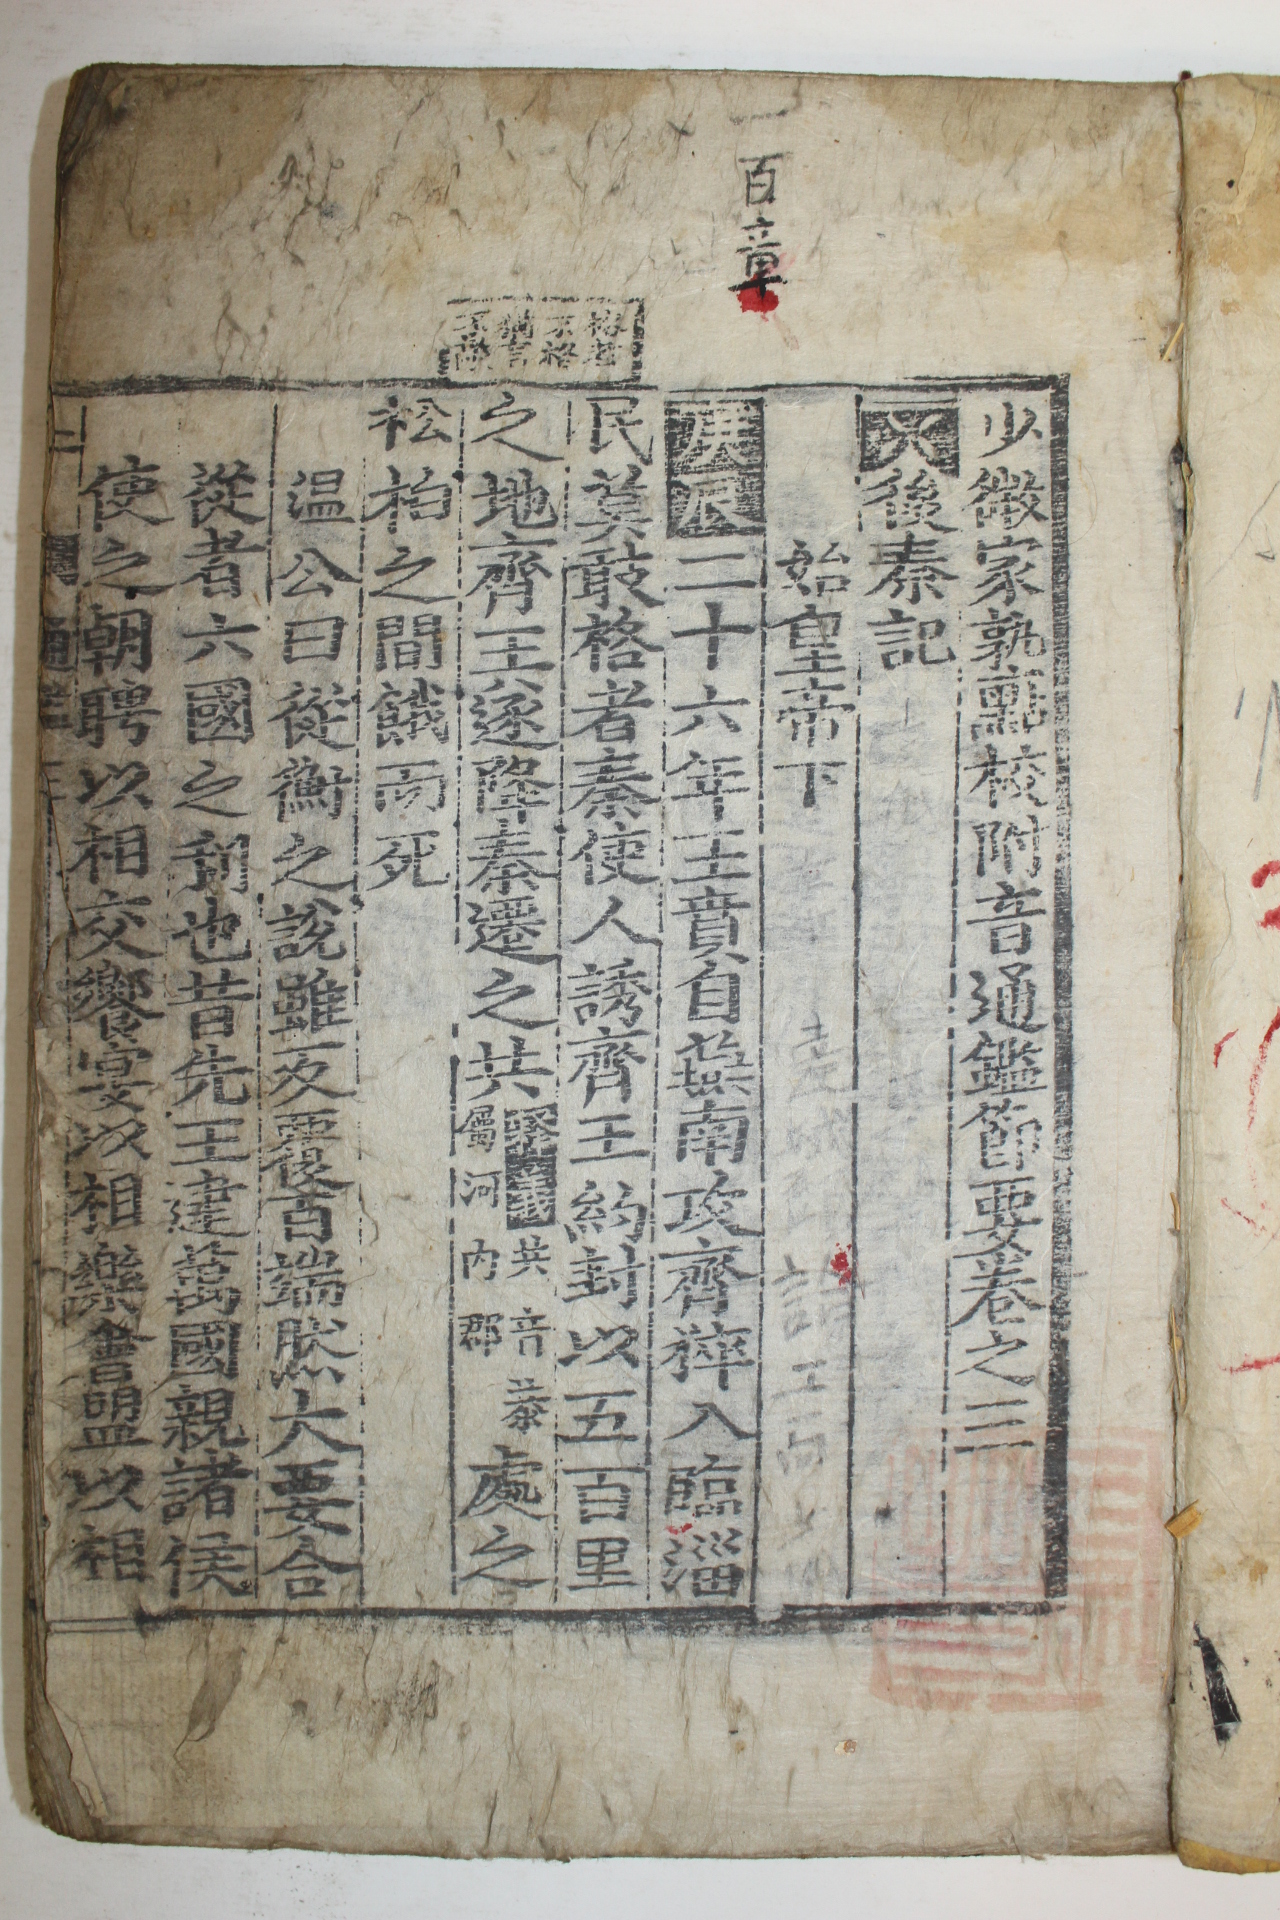 一百章
格者
不格
猶言
不敵
少微家塾點校附音通鑑節要卷之三
後秦記
始皇帝下
庚辰二十六年王賁自燕南攻齊猝入臨淄
民莫敢格者秦使人誘齊王約封以五百里
之地齊王遂降秦遷之共
釋義共音恭
屬河內郡
處之
松柏之間餓而死
温公曰從衡之說雖反覆百端然大要合
從者六國之利也昔先王建萬國親諸侯
使之朝聘以相交饗宴以相樂會盟以相
通鑑三